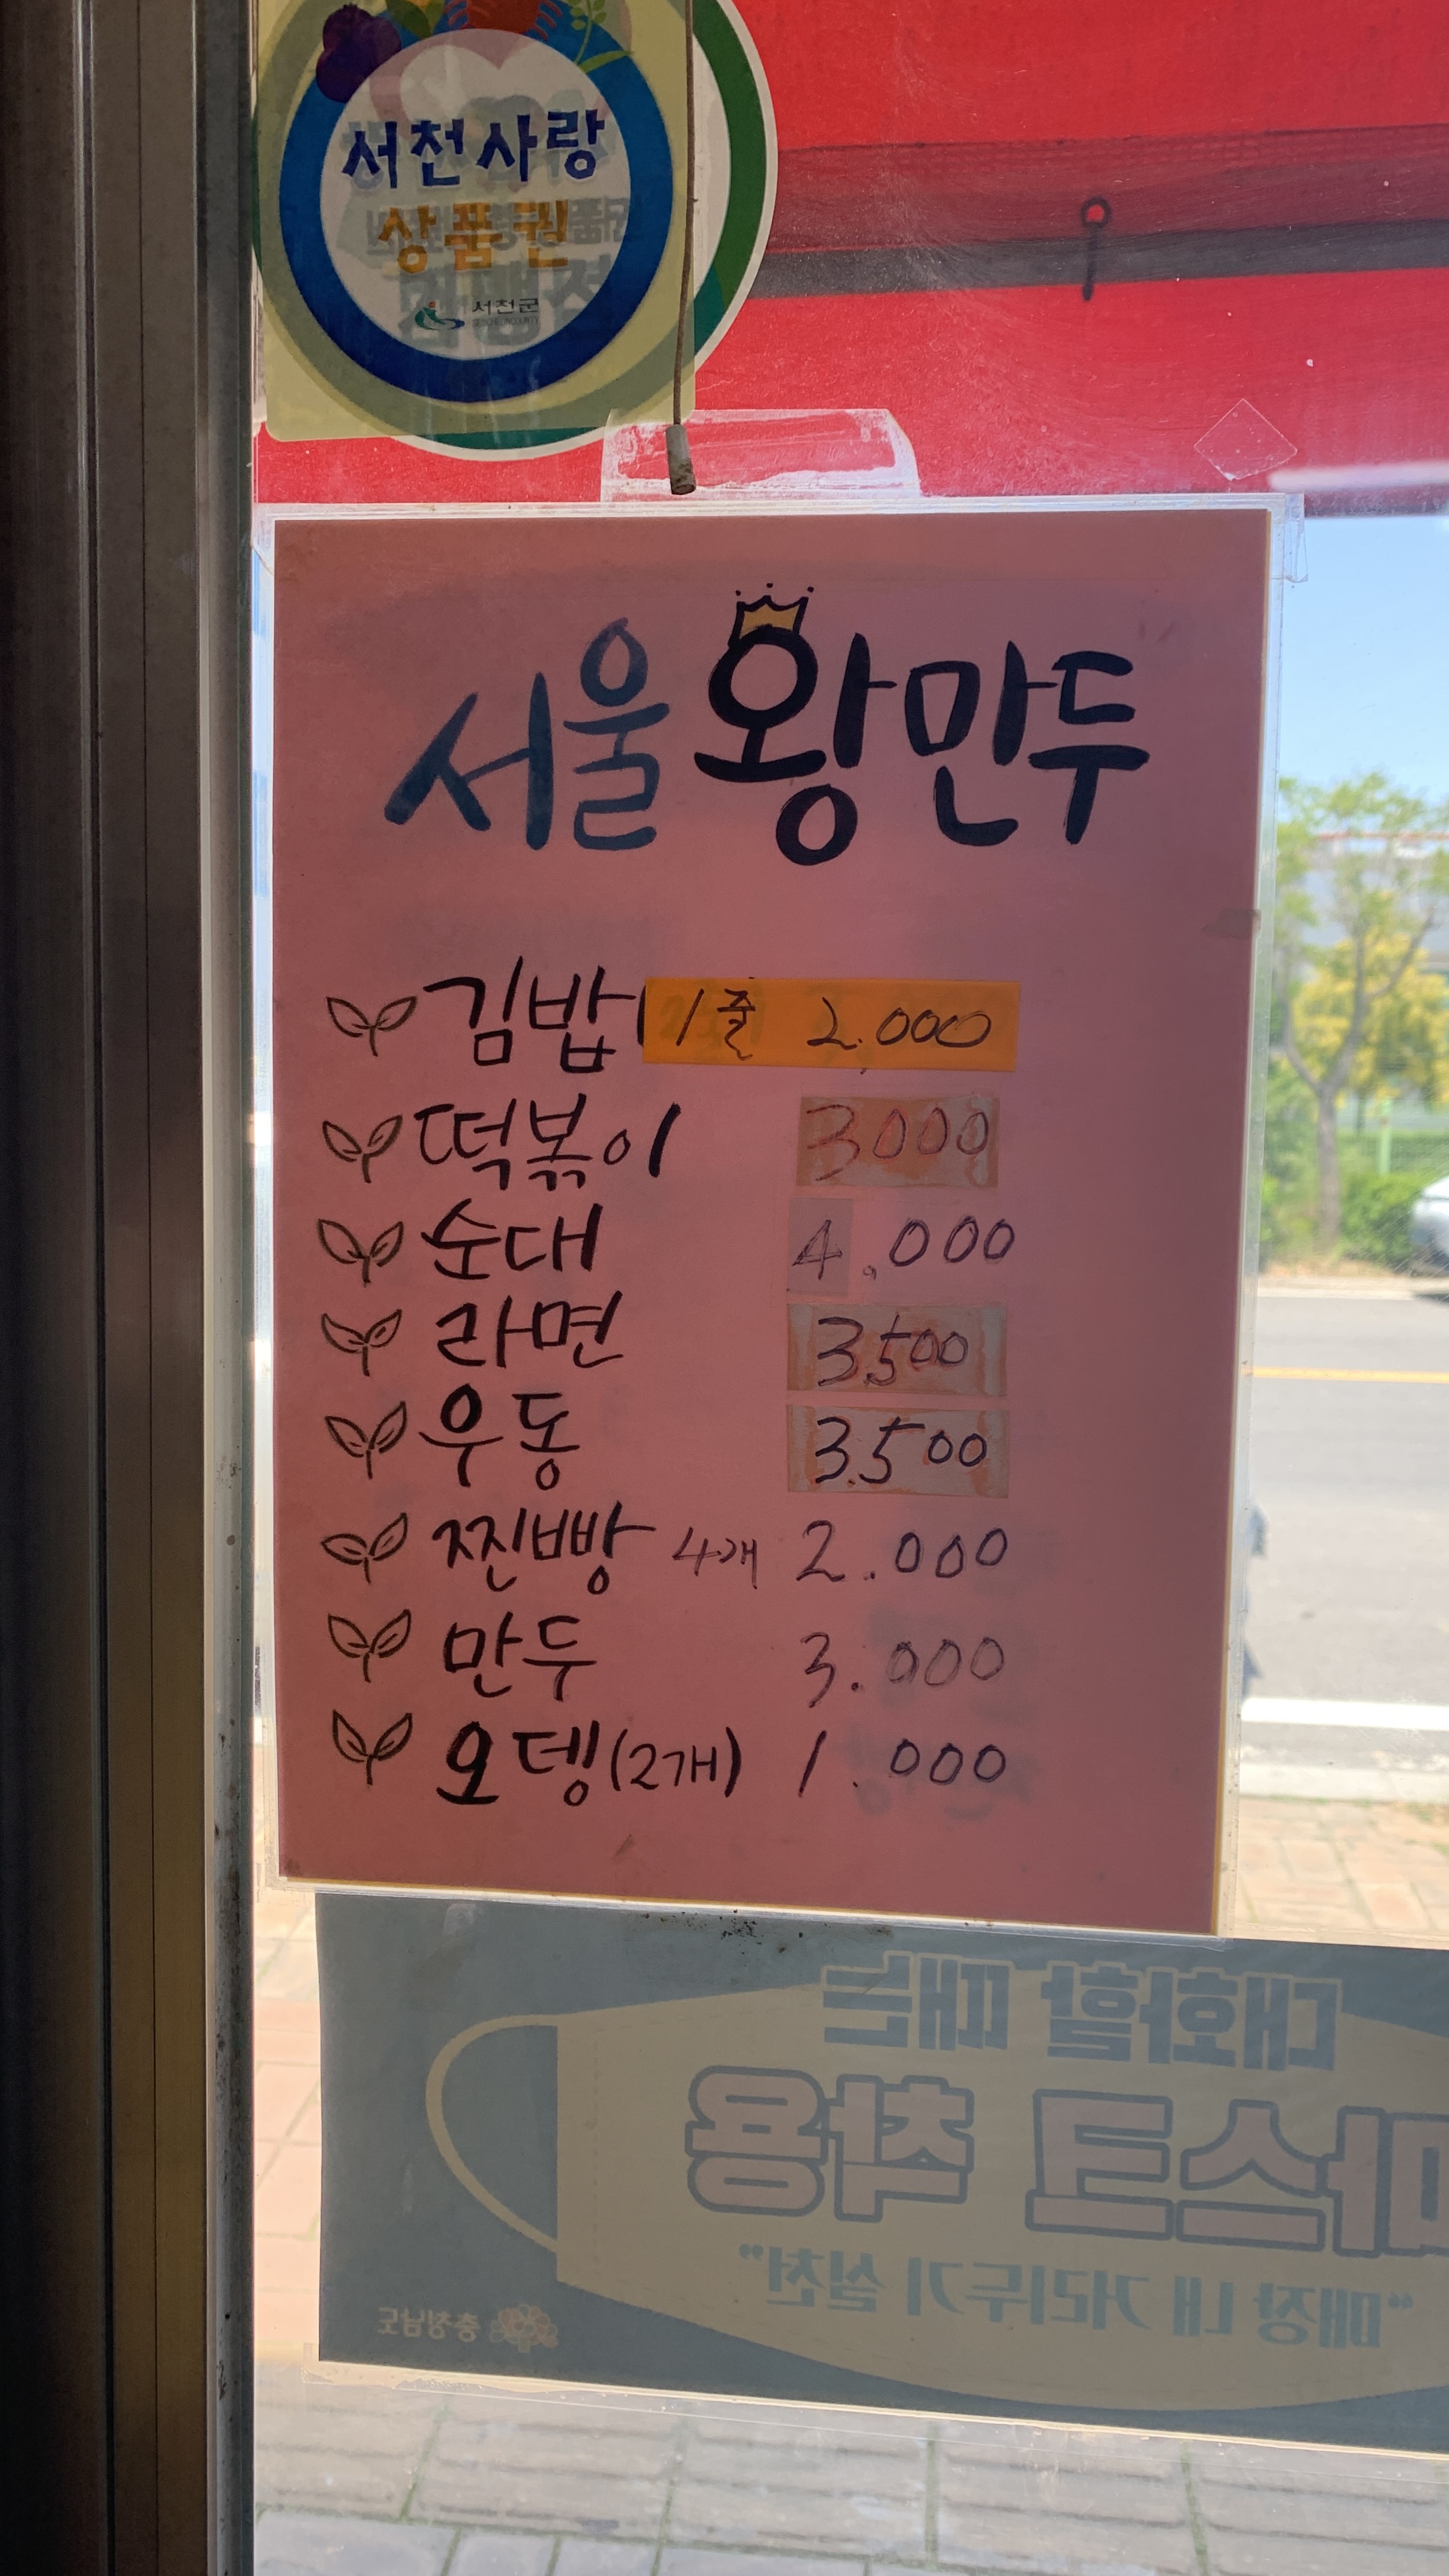 서천사랑
상품권
서천군
서울 왕만두
김밥 1줄 2.000
떡볶이 3000
순대 4.000
라면 3.500
우동 3.500
찐빵 4개 2.000
만두 3.000
오뎅(2개) 1.000
대화할 때는
마스크 착용
“매장 내 거리두기 실천”
충청남도